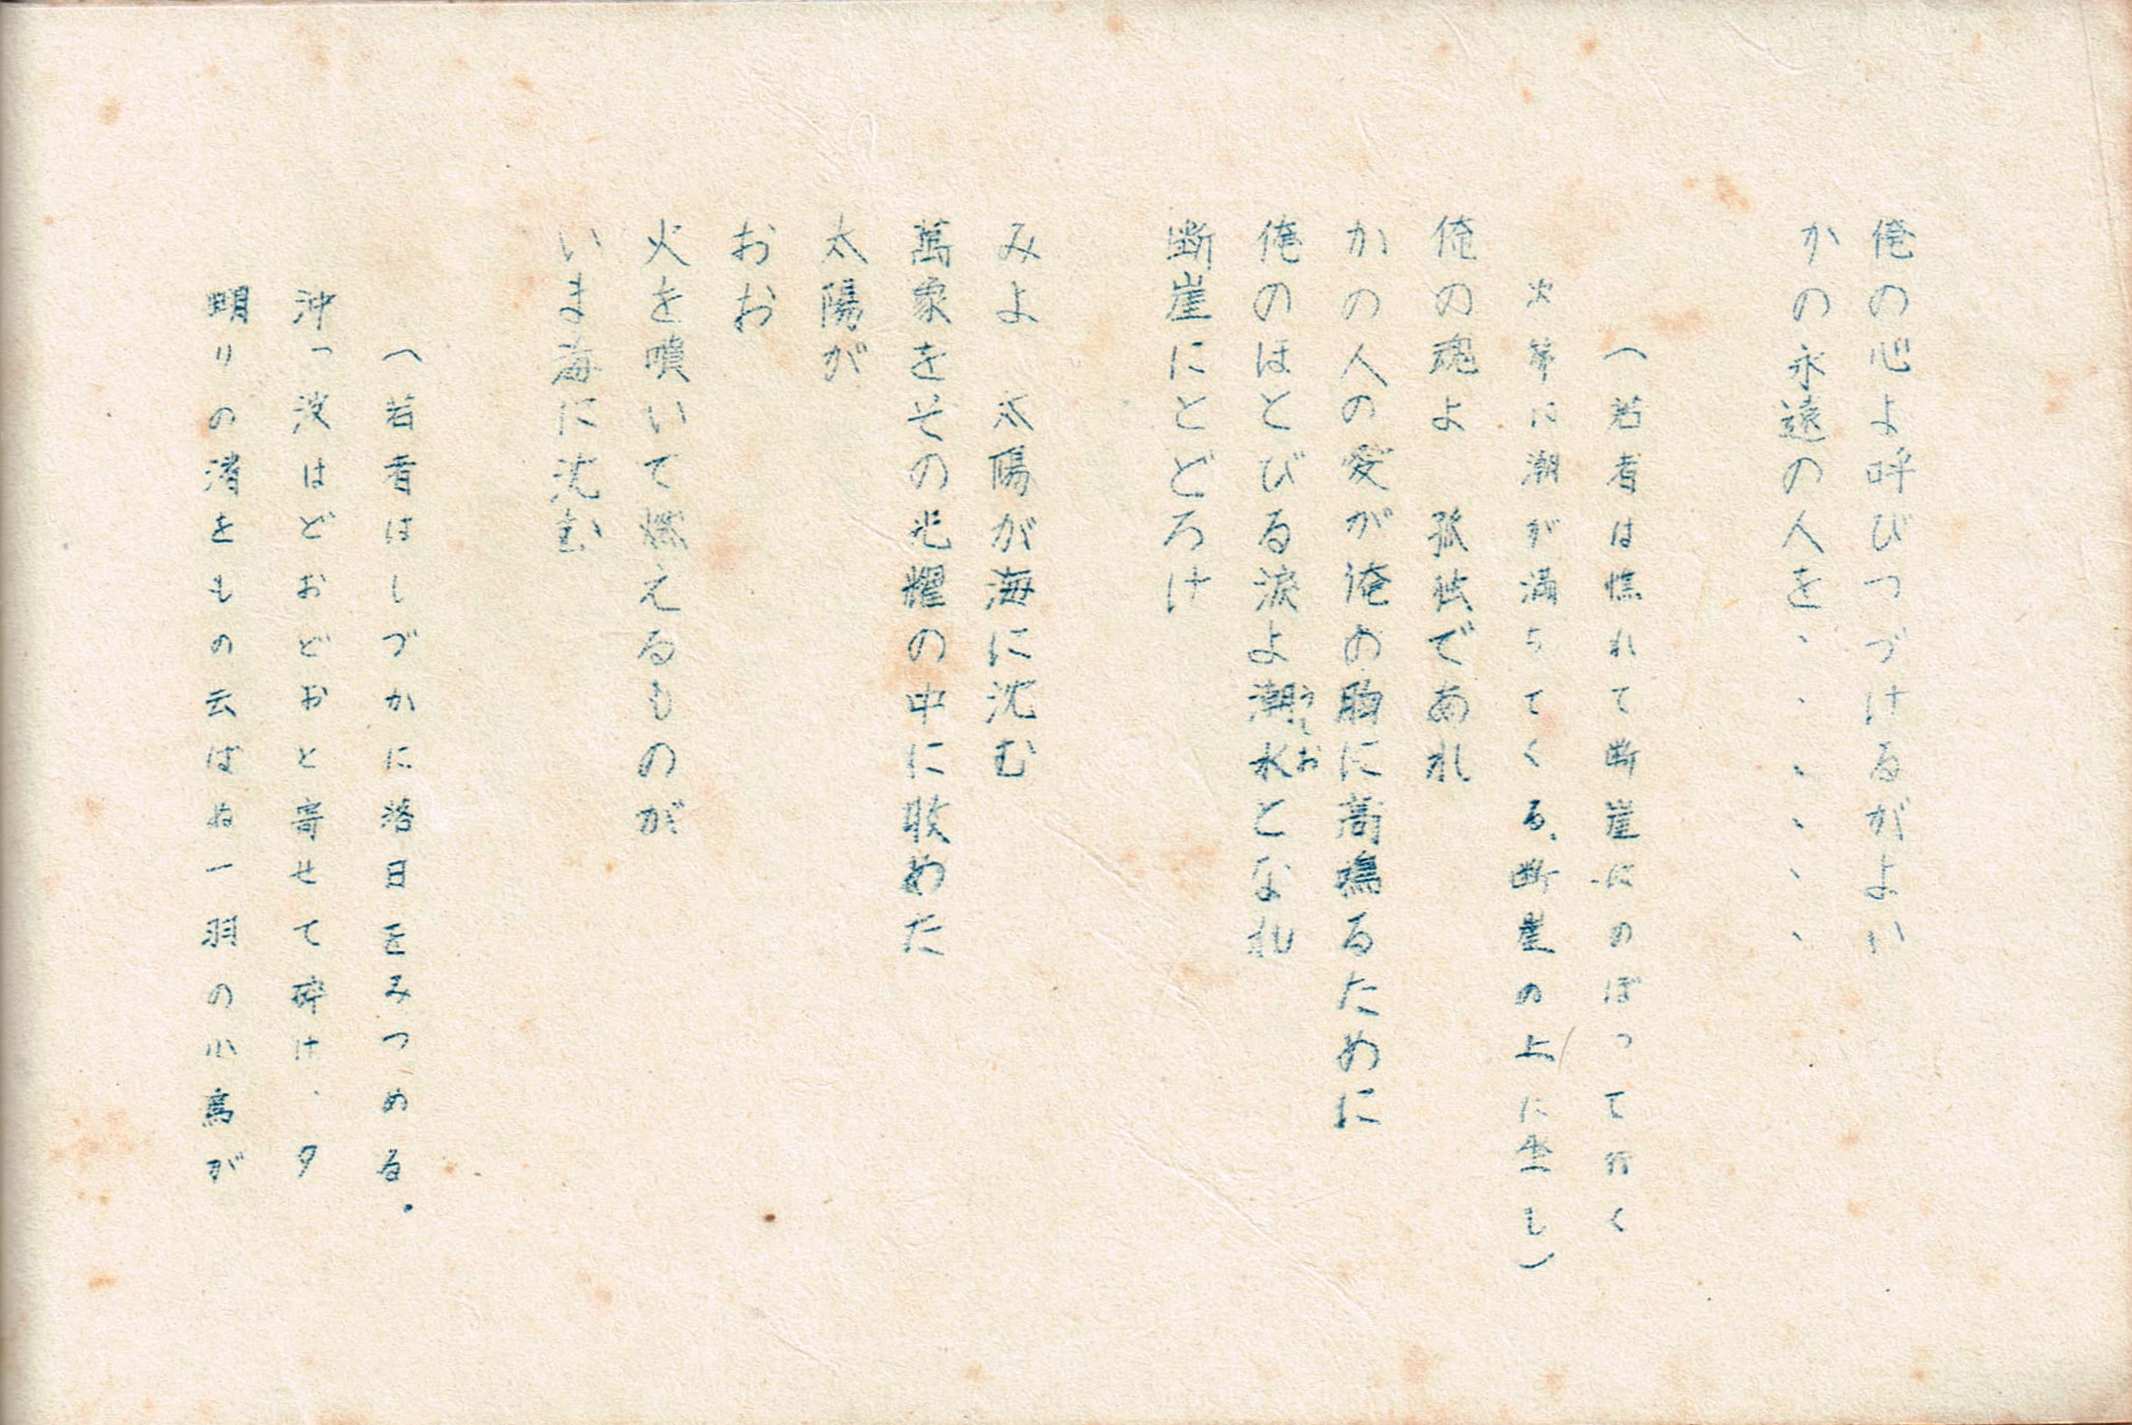 俺の心よ呼びつづけるがよい
かの永遠の人を、、、、、、
（若者は憔れて断崖にのぼって行く
次第に潮が満ちてくる、断崖の上に坐し）
俺の魂よ　孤独であれ
かの人の愛が俺の胸に高鳴るために
俺のほとびる涙よ潮水となれ
うしお
断崖にとどろけ
みよ　太陽が海に沈む
萬象をその光耀の中に収めた
太陽が
おお
火を噴いて燃えるものが
いま海に沈む
（若者はしづかに落日をみつめる。
沖つ波はどおどおと寄せて砕け、夕
明りの渚をもの云はぬ一羽の小鳥が